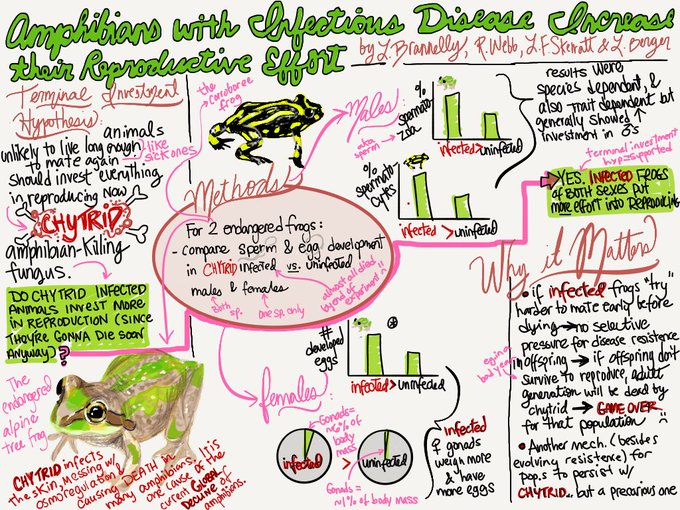 Amphibians with Infectious Disease Increase
their Reproductive Effort
by L. Brannelly, R. Webb, L.F. Skerratt & L. Berger
Terminal Investment
Hypothesis:
animals
unlikely to live long enough
to mate again
like
sick ones
should invest everything
in reproducing now
CHYTRID
amphibian-killing
fungus.
DO CHYTRID INFECTED
ANIMALS INVEST MORE
IN REPRODUCTION (SINCE
THEY'RE GONNA DIE SOON
Anyway)?
The
endangered
alpine
tree frog
CHYTRID infects
the skin, messing w/
osmoregulation &
causing DEATH in
many amphibians. It is
one cause of the
current GLOBAL
DECLINE of
amphibians.
the
corroboree
frog
Methods
For 2 endangered frogs:
- compare sperm & egg development
in CHYTRID infected vs. uninfected
males & females
both
sp.
one sp. only
almost all died
by end of
experiment
Males:
aka
sperm
%
spermato-
zoa
infected > uninfected
%
spermato-
cytes
infected > uninfected
results were
species dependent, &
also trait dependent but
generally showed ↑
investment in ♂s
terminal investment
hyp = supported
YES. INFECTED FROGS
OF BOTH SEXES PUT
MORE EFFORT INTO REPRODUCING
females:
#
developed
eggs
infected > uninfected
Gonads=
of body
mass
infected > uninfected
Gonads=
% of body mass
infected
♀ gonads
weigh more
& have
more eggs
Why it Matters
• if infected frogs "try"
harder to mate early before
dying → no selective
pressure for disease resistence
in offspring → if offspring don't
survive to reproduce, adult
generation will be dead by
chytrid → GAME OVER
for that population
bad year
• Another mech. (besides
evolving resistence) for
pop.s to persist w/
CHYTRID... but a precarious one.